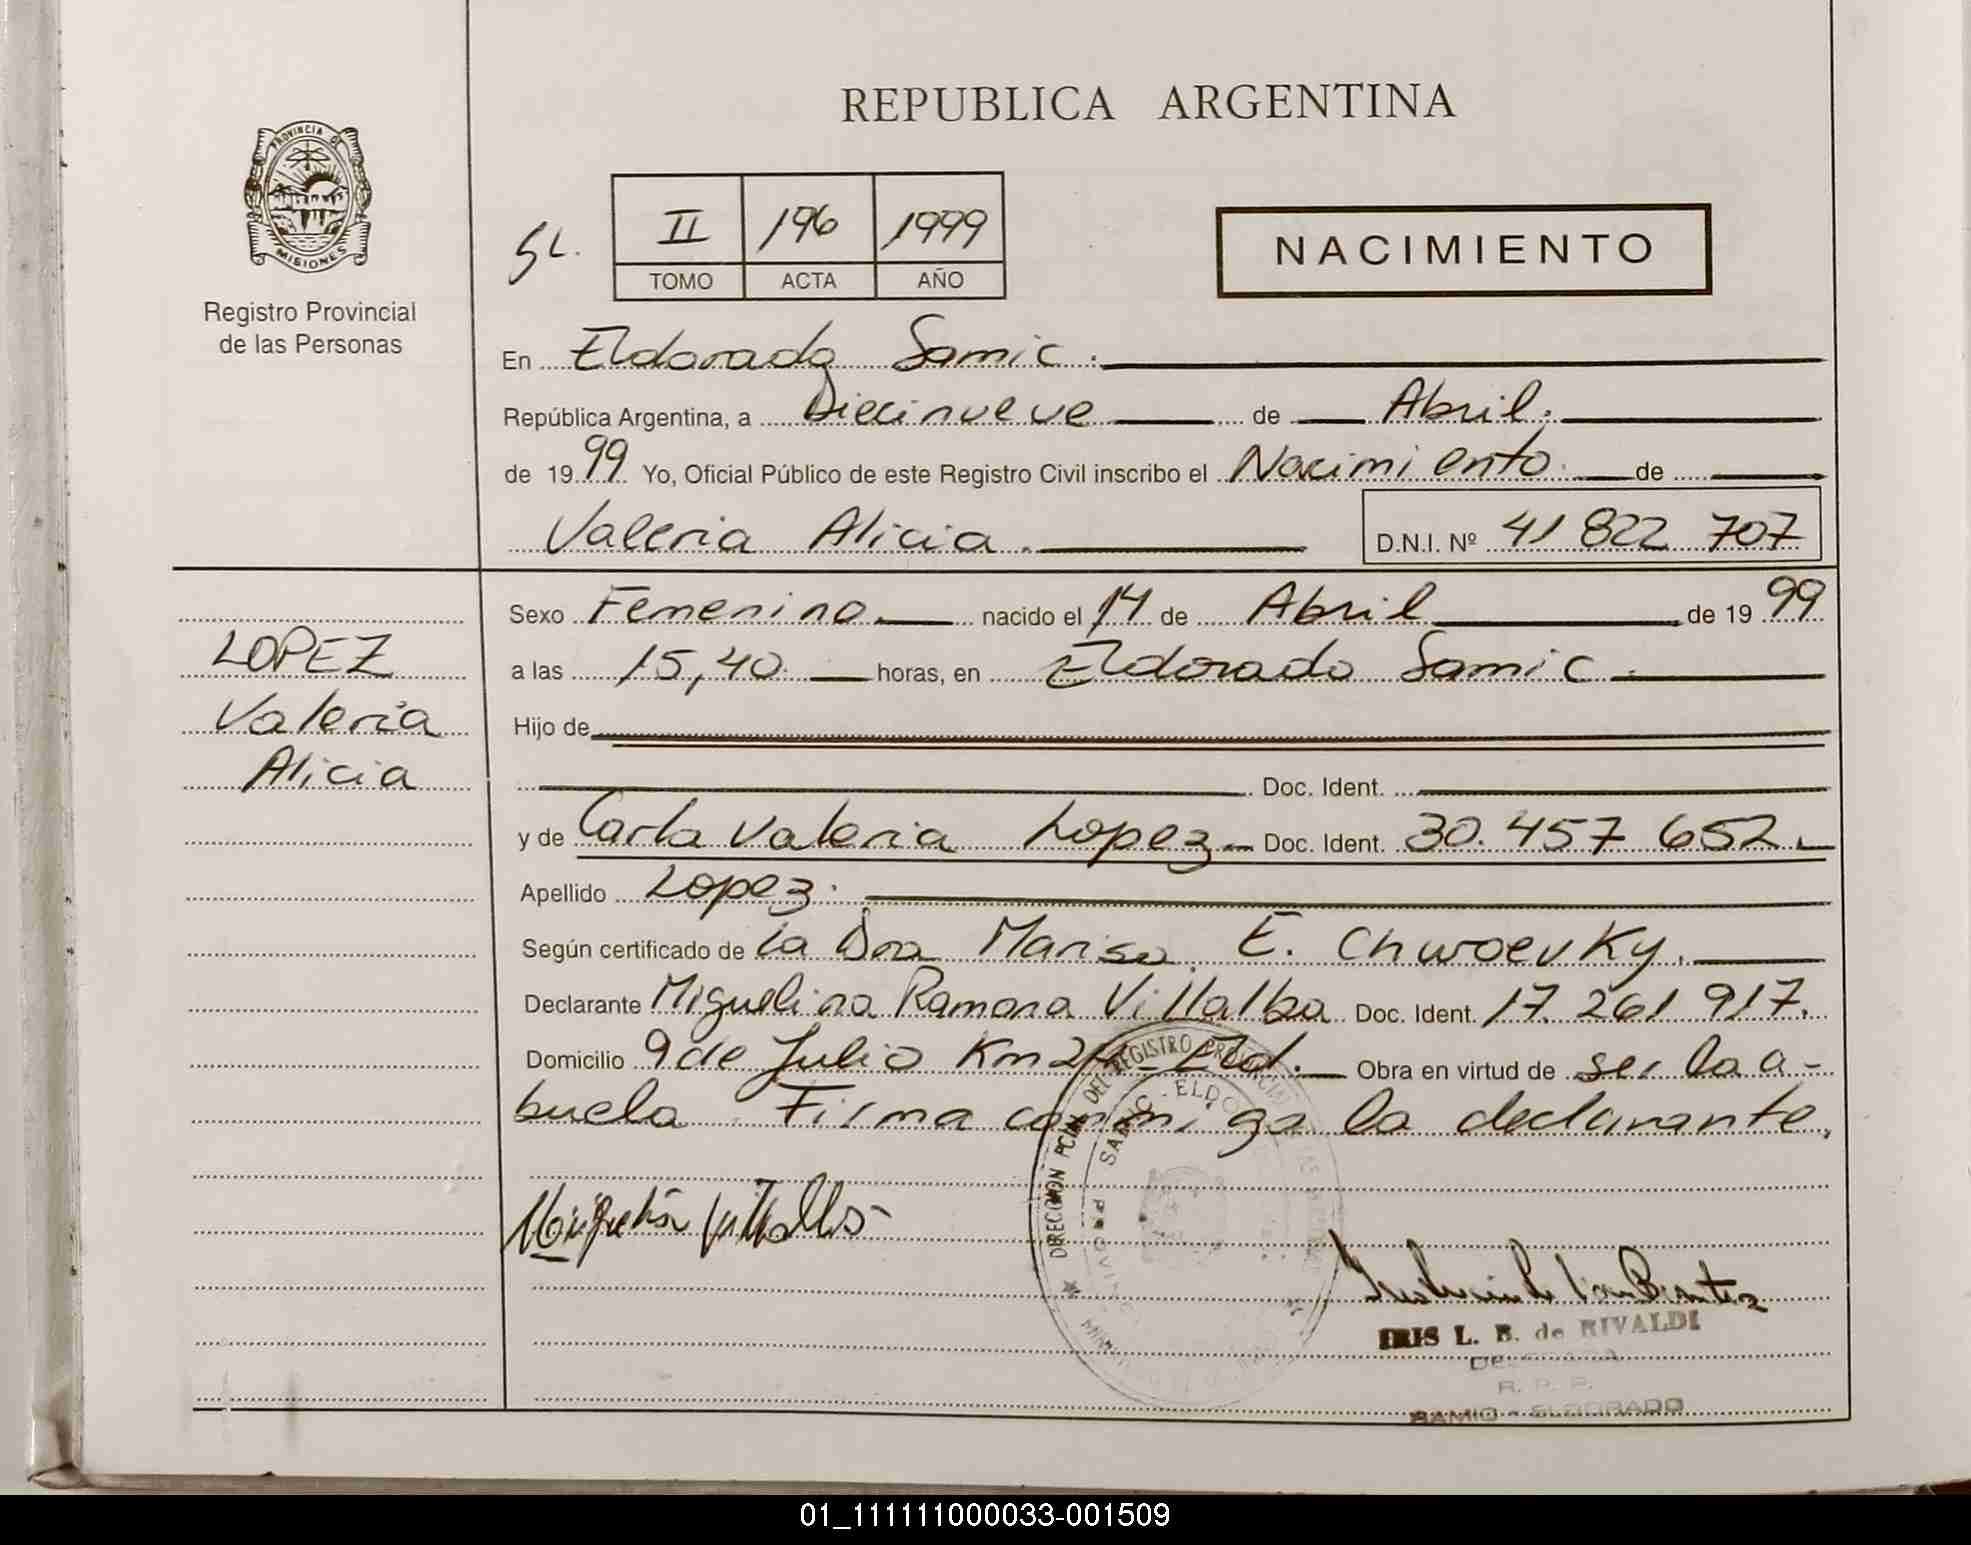 REPUBLICA ARGENTINA
PROVINCIA DE
MISIONES
Registro Provincial
de las Personas
SL.
II 196 1999
TOMO ACTA AÑO
NACIMIENTO
En Eldorado Samic.
República Argentina, a Diecinueve de Abril.
de 1999 Yo, Oficial Público de este Registro Civil inscribo el Nacimiento de
Valeria Alicia. D.N.I. Nº 41 822 707
LOPEZ
Valeria
Alicia
Sexo Femenino nacido el 14 de Abril de 1999
a las 15,40 horas, en Eldorado Samic.
Hijo de
Doc. Ident.
y de Carla Valeria Lopez Doc. Ident. 30.457 652
Apellido Lopez.
Según certificado de la Dra Marisa E. Chwoevky.
Declarante Miguelina Ramona Villalba Doc. Ident. 17.261 917.
Domicilio 9 de Julio Km 2 Eld. Obra en virtud de ser la a-
buela. Firma conmigo la declarante,
DIRECCION PCIAL DEL REGISTRO PROVINCIAL
SAMIC - ELDO
IRIS L. B. de RIVALDI
DELEGADA
R. P. P.
SAMIC - ELDORADO
01_111111000033-001509